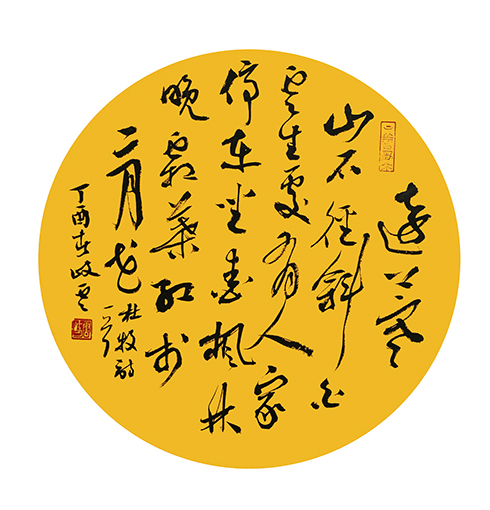 遠上寒
山石徑斜白
雲生處有人家
停車坐愛楓林
晚霜葉紅於
二月花
杜牧詩
一首
丁酉春